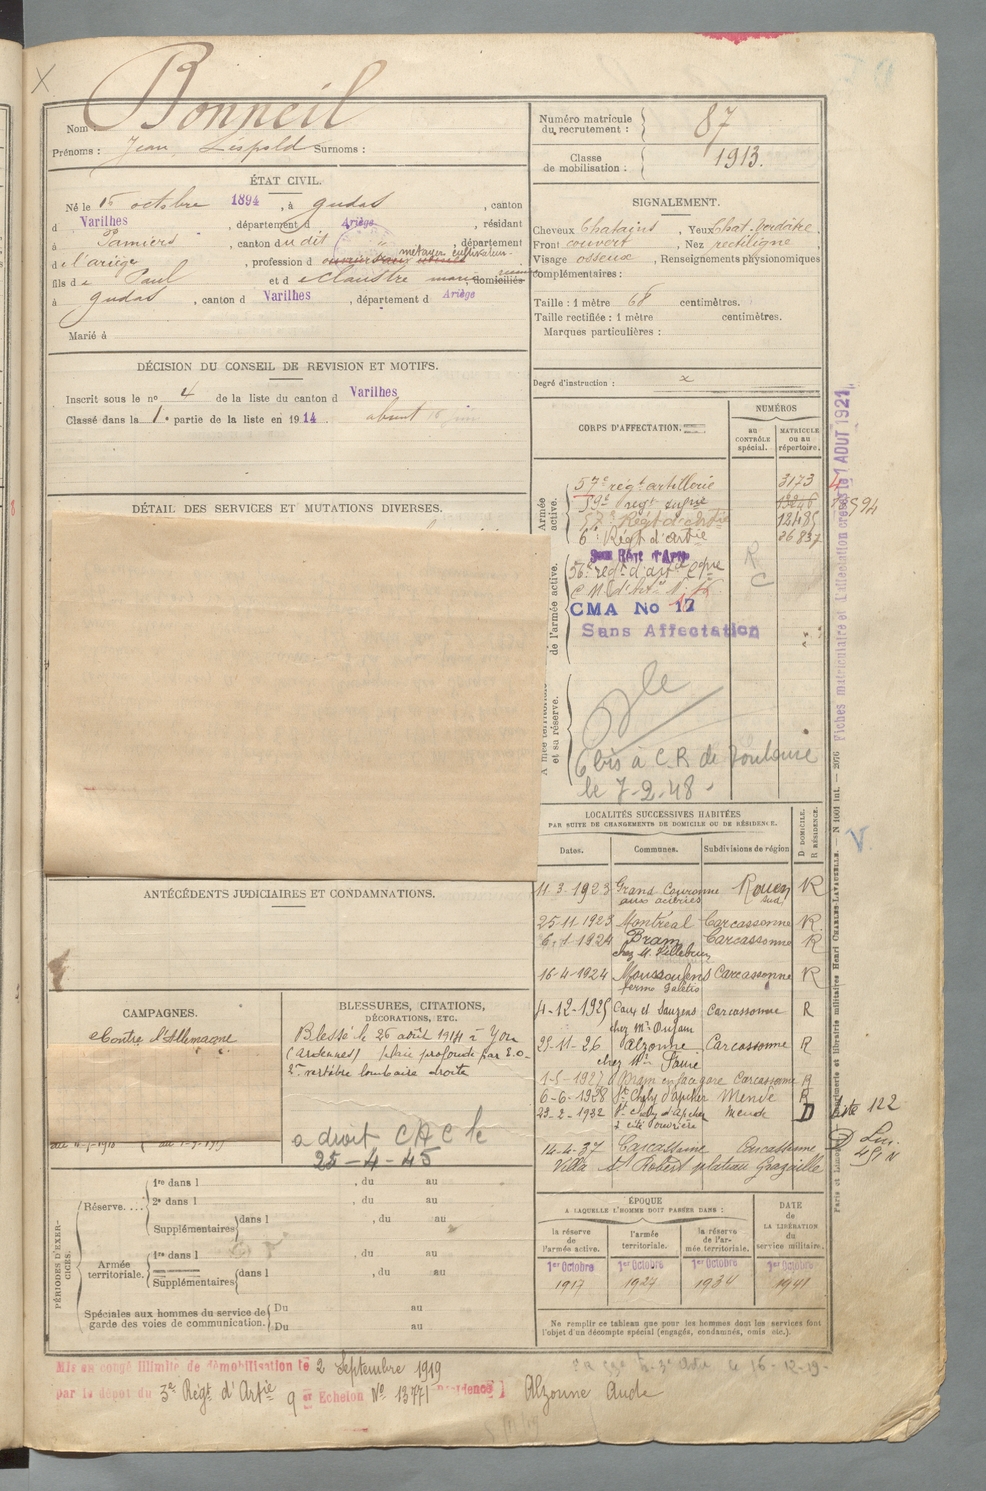 X
Nom : Bonneil
Prénoms : Jean, Léopold Surnoms :
Numéro matricule du recrutement : 87
Classe de mobilisation : 1913.
ÉTAT CIVIL.
Né le 15 octobre 1894, à Gudas, canton
d Varilhes, département d Ariège, résidant
à Pamiers, canton du dit, département
de l'ariège, profession d métayer cultivateur.
fils de Paul et de Claustre domiciliés
à Gudas, canton d Varilhes, département d Ariège
Marié à
SIGNALEMENT.
Cheveux Chatains, Yeux Chat. verdâtre,
Front couvert, Nez rectiligne,
Visage osseux, Renseignements physionomiques
complémentaires :
Taille : 1 mètre 68 centimètres.
Taille rectifiée : 1 mètre centimètres.
Marques particulières :
Degré d'instruction : x
DÉCISION DU CONSEIL DE REVISION ET MOTIFS.
Inscrit sous le n° 4 de la liste du canton d Varilhes
Classé dans la 1e partie de la liste en 1914. absent
DÉTAIL DES SERVICES ET MUTATIONS DIVERSES.
CORPS D'AFFECTATION.
NUMÉROS
au CONTRÔLE spécial.
MATRICULE ou au répertoire.
Armée active.
57e régt artillerie 3173
59e régt infrie 13246
57e Régt d'artie 12485
6e Régt d'artie 26837
de l'armée active.
56e régt d'art
CMA No 17
Sans Affectation
R
C
et sa réserve.
6 bis à C.R de Toulouse
le 7-2-48-
Fiches matriculaire et d'affectation créées le 1 AOUT 1921
V.
LOCALITÉS SUCCESSIVES HABITÉES
PAR SUITE DE CHANGEMENTS DE DOMICILE OU DE RÉSIDENCE.
Dates. Communes. Subdivisions de région D DOMICILE. R RÉSIDENCE.
11.3.1923 Grand Couronne Rouen R
aux aciéries sud
25-11-1923 Montréal Carcassonne R
6.1.1924 Bram Carcassonne R
chez M. Villebrun
16-4-1924 Moussoulens Carcassonne R
ferme
4-12-1925 Caux et Sauzens Carcassonne R
chez Mr Dujam
23-11-26 Alzonne Carcassonne R
chez Mr Faure
1-5-1927 Bram en face gare Carcassonne R
6-6-1928 St Chely d'apcher Mende R
23-2-1932 St Chely d'apcher Mende D
2 cité ouvrière
14-4-37 Carcassonne Carcassonne
Villa St Robert plateau Grazaille
Liste 122
ANTÉCÉDENTS JUDICIAIRES ET CONDAMNATIONS.
CAMPAGNES.
Contre l'Allemagne
BLESSURES, CITATIONS,
DÉCORATIONS, ETC.
Blessé le 26 août 1914 à Yon
(Ardennes) plaie profonde par E.O.
2e vertèbre lombaire droite
a droit CAC le
25-4-45
PÉRIODES D'EXERCICES.
Réserve....
1re dans l , du au
2e dans l , du au
Supplémentaires dans l , du au
Armée territoriale.
1re dans l , du au
Supplémentaires dans l , du au
Spéciales aux hommes du service de Du au
garde des voies de communication. Du au
ÉPOQUE
A LAQUELLE L'HOMME DOIT PASSER DANS :
DATE de LA LIBÉRATION du service militaire.
la réserve de l'armée active.
l'armée territoriale.
la réserve de l'armée territoriale.
1er Octobre 1er Octobre 1er Octobre 1er Octobre
1917 1924 1934 1941
Ne remplir ce tableau que pour les hommes dont les services font
l'objet d'un décompte spécial (engagés, condamnés, omis etc.).
Paris et Limoges. Imprimerie et librairie militaires Henri CHARLES-LAVAUZELLE. — N 1001 int. — 2076
Mis en congé illimité de démobilisation le 2 Septembre 1919
par le dépôt du 3e Régt d'Artie 9e Echelon No 13771 Alzonne Aude